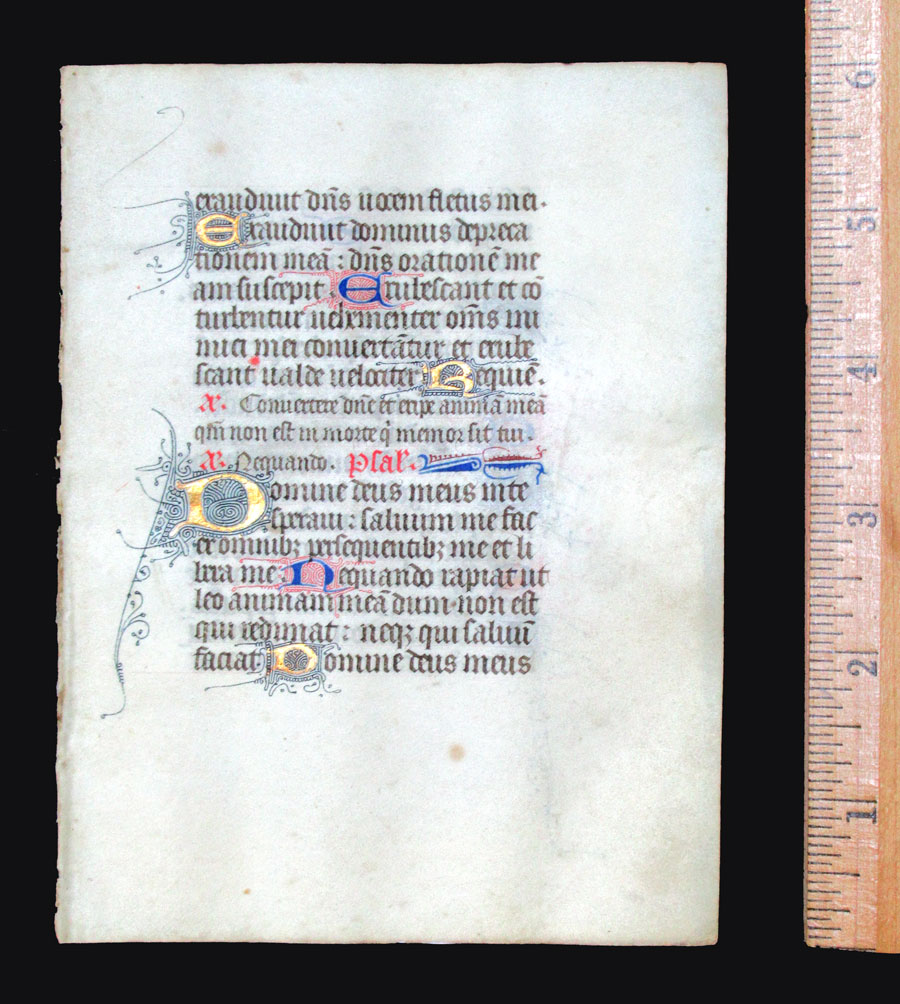 exaudiuit dn̄s uocem fletus mei.
Exaudiuit dominus depreca
tionem meā : dn̄s orationē me
am suscepit Erubescant et cō
turbentur uehementer om̄s ini
mici mei conuertātur et erube
scant ualde uelociter Requiē.
A. Conuertere dn̄e et eripe animā meā
qm̄ non est in morte q̇ memor sit tui.
A. Nequando. psal.
Domine deus meus in te
speraui : saluum me fac
ex omnibꝫ persequentibꝫ me et li
bera me Nequando rapiat ut
leo animam meā dum non est
qui redimat : neqꝫ qui saluū
faciat Domine deus meus
6
5
4
3
2
1